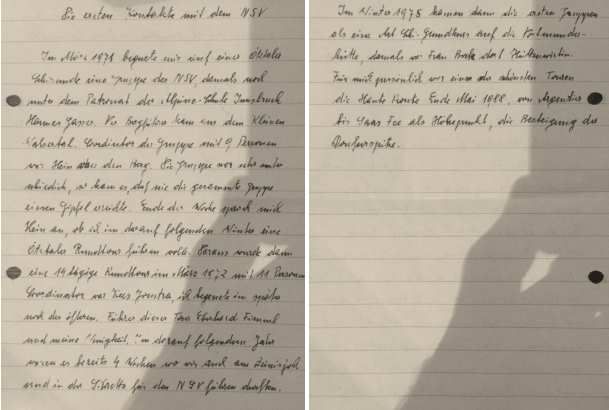 Die ersten Kontakte mit dem NSV
Im März 1971 begnete mir auf einer Ötztaler
Schirunde eine Gruppe des NSV, damals noch
unter dem Patronat der Alpine Schule Innsbruck
Hannes Gasser. Der Bergführer kam aus dem Kleinen
Walsertal. Coordinator der Gruppe mit 9 Personen
war Hein den Haag. Die Gruppe war sehr unter
schiedlich, so kam es, daß nie die gesammte Gruppe
einen Gipfel ereichte. Ende der Woche sprach mich
Hein an, ob ich im darauf folgenden Winter eine
Ötztaler Rundtour führen wolle. Daraus wurde dann
eine 14 tägige Rundtour im März 1972 mit 11 Personen
Coordinator war Joustra, ich begnete im später
noch des öfteren. Führer dieser Tour Eberhard
und meine Wenigkeit. Im darauf folgendem Jahr
waren es bereits 4 Wochen wo wir auch am
und in der Silvretta für den NSV führen durften.
Im Winter 1975 kamen dann die ersten Gruppen
als eine Art Schi-Grundkurs auf die
hütte, damals war Frau dort Hüttenwirtin.
Für mich persönlich war eine der schönsten Touren
die Haute Route Ende Mai 1988, von Argentier
bis Saas Fee als Höhepunkt, die Besteigung der
Dufourspitze.